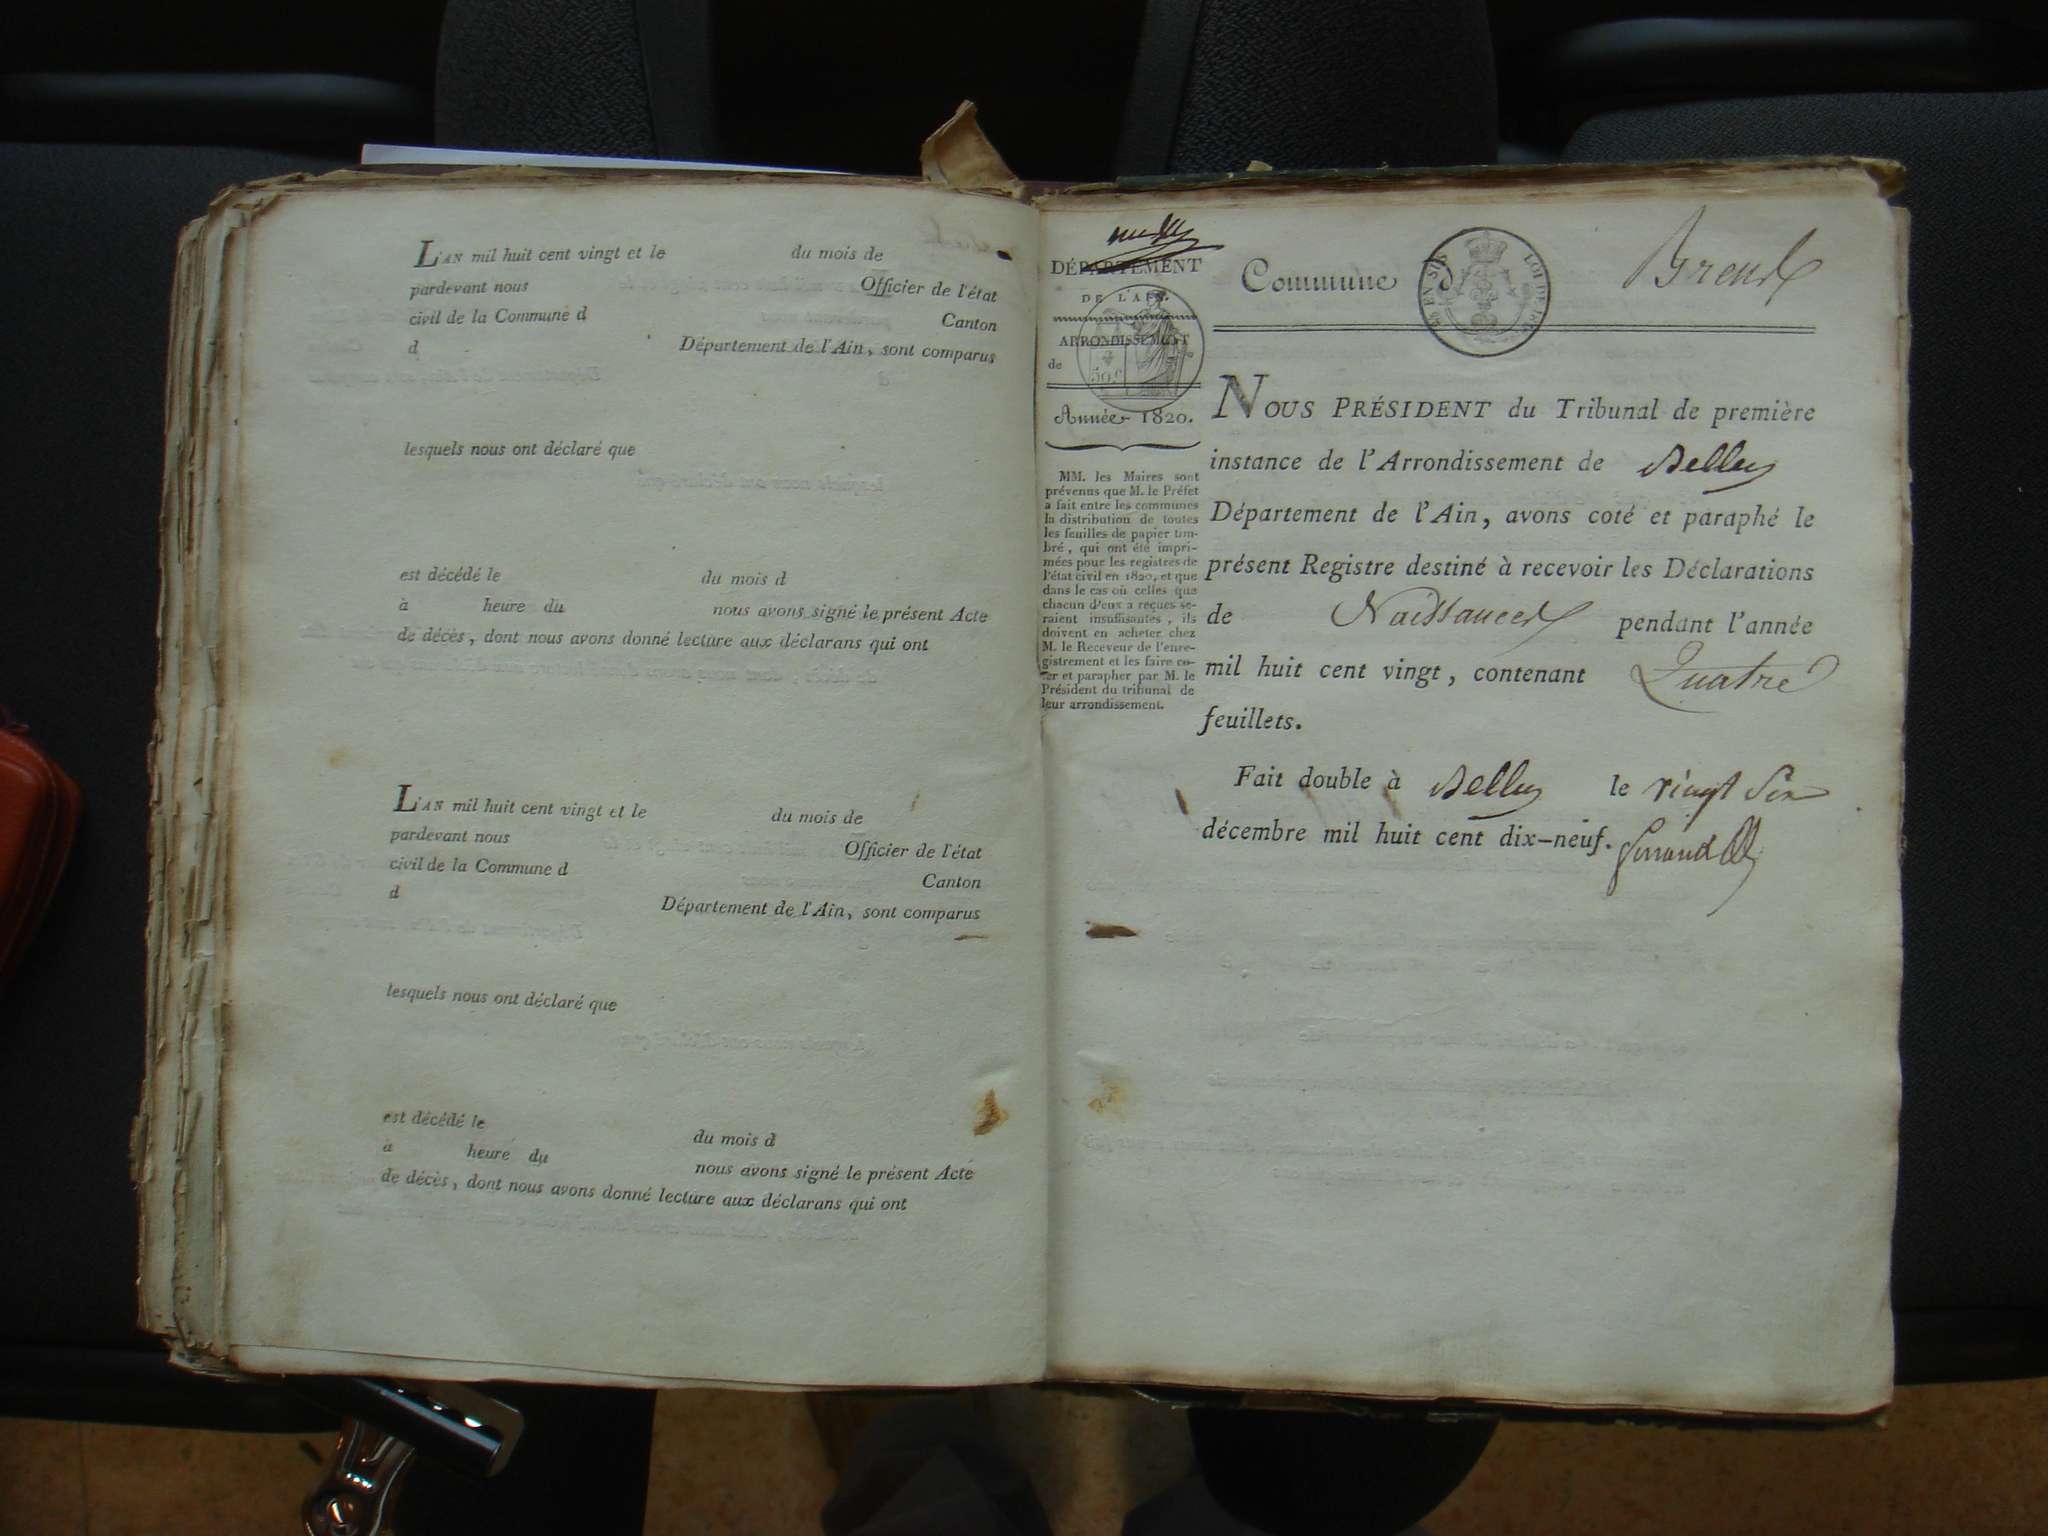 L'AN mil huit cent vingt et le du mois de
pardevant nous Officier de l'état
civil de la Commune d Canton
d Département de l'Ain, sont comparus
lesquels nous ont déclaré que
est décédé le du mois d
à heure du nous avons signé le présent Acte
de décès, dont nous avons donné lecture aux déclarans qui ont
L'AN mil huit cent vingt et le du mois de
pardevant nous Officier de l'état
civil de la Commune d Canton
d Département de l'Ain, sont comparus
lesquels nous ont déclaré que
est décédé le du mois d
à heure du nous avons signé le présent Acte
de décès, dont nous avons donné lecture aux déclarans qui ont
DÉPARTEMENT
DE L'AIN.
ARRONDISSEMENT
de
50 c
Année 1820.
MM. les Maires sont
prévenus que M. le Préfet
a fait entre les communes
la distribution de toutes
les feuilles de papier tim-
bré, qui ont été impri-
mées pour les registres de
l'état civil en 1820, et que
dans le cas où celles que
chacun d'eux a reçues se-
raient insuffisantes, ils
doivent en acheter chez
M. le Receveur de l'enre-
gistrement et les faire co-
ter et parapher par M. le
Président du tribunal de
leur arrondissement.
Commune d
EN SUS LOI DE
NOUS PRÉSIDENT du Tribunal de première
instance de l'Arrondissement de Belley
Département de l'Ain, avons coté et paraphé le
présent Registre destiné à recevoir les Déclarations
de Naissances pendant l'année
mil huit cent vingt, contenant Quatre
feuillets.
Fait double à Belley le vingt Six
décembre mil huit cent dix-neuf.